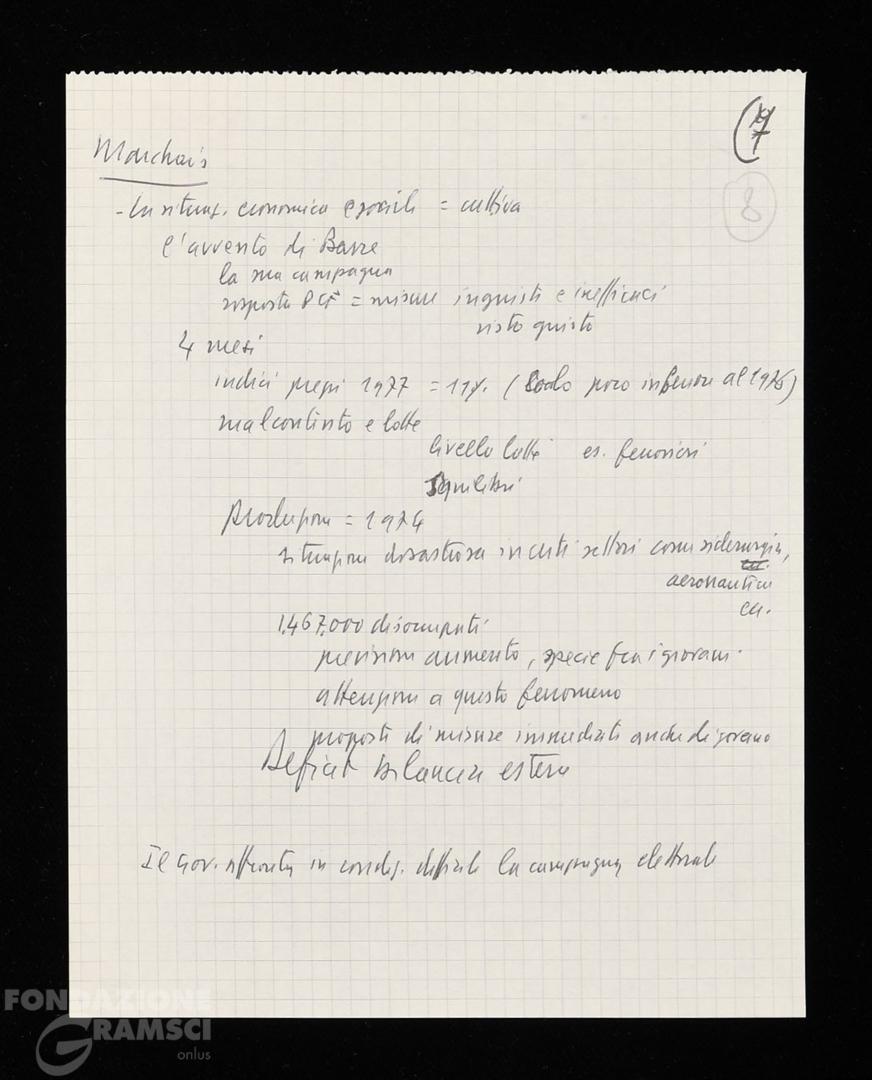 (7
8
Marchais
- La situaz. economica e sociale = cattiva
l'avvento di Barre
la sua campagna
risposta PCF = misure ingiuste e inefficaci
visto giusto
4 mesi
indici prezzi 1977 = 11%. (solo poco inferiore al 1976)
malcontento e lotte
livello lotte es. ferrovieri
squilibri
Produzione = 1974
situazione disastrosa in certi settori come siderurgia,
aeronautica
ecc.
1.467.000 disoccupati
previsioni aumento, specie fra i giovani.
attenzione a questo fenomeno
proposte di misure immediate anche di governo
Deficit bilancia estera
Il Gov. affronta in condiz. difficili la campagna elettorale
FONDAZIONE
GRAMSCI
onlus